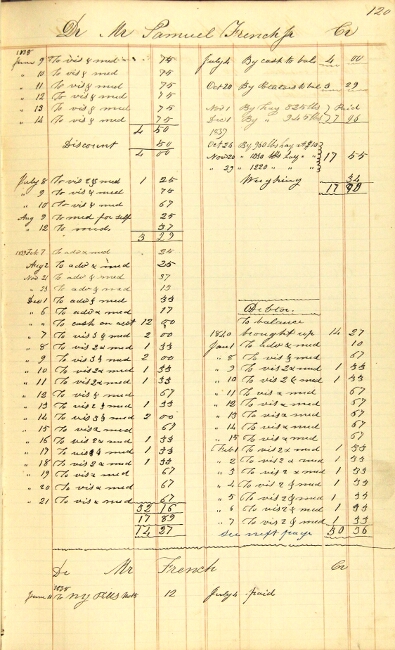 120
Dr Mr Samuel French Jr Cr
1838
June 9 To vis & med 75
" 10 To vis & med 75
" 11 To vis & med 75
" 12 To vis & med 75
" 13 To vis & med 75
" 14 To vis & med 75
4 50
Discount 50
4 00
July 8 To vis & med 1 25
" 9 To vis & med 75
" 10 To vis & med 67
Aug 9 To med for self 25
" 12 To meds 37
3 29
1839 Feb 7 To adv & med 25
Aug 2 To adv & med 25
Nov 21 To adv & med 37
" 23 To adv & med 13
Dec 1 To adv & med 33
" 6 To adv & med 17
" " To cash on acct 12 50
" 7 To vis 3 & med 2 00
" 8 To vis 2 & med 1 33
" 9 To vis 3 & med 2 00
" 10 To vis 2 & med 1 33
" 11 To vis 2 & med 1 33
" 12 To vis & med 67
" 13 To vis 2 & med 1 33
" 14 To vis 3 & med 2 00
" 15 To vis & med 67
" 16 To vis 2 & med 1 33
" 17 To vis & med 1 33
" 18 To vis 2 & med 1 33
" 19 To vis & med 67
" 20 To vis & med 67
" 21 To vis & med 67
32 16
17 89
14 27
July 4 By cash to bal 4 00
Oct 20 By to bal 3 29
Nov 1 By hay 325 lbs Paid
Dec 1 By " 345 lbs 7 95
1839
Oct 26 By 910 lbs hay
Nov 20 " 1030 lbs hay " 17 55
" 29 " 1220 " "
Weighing 34
17 89
Debtor
To balance
1840 brought up 14 27
Jan 1 To adv & med 10
" 8 To vis & med 67
" 9 To vis 2 & med 1 33
" 10 To vis 2 & med 1 33
" 11 To vis & med 67
" 12 To vis & med 67
" 13 To vis & med 67
" 14 To vis & med 67
" 15 To vis & med 67
Feb 1 To vis 2 & med 1 33
" 2 To vis 2 & med 1 33
" 3 To vis 2 & med 1 33
" 4 To vis 2 & med 1 33
" 5 To vis 2 & med 1 33
" 6 To vis 2 & med 1 33
" 7 To vis 2 & med 1 33
See next page 30 36
Dr Mr French Cr
1838
June 11 To 12
July 4 paid